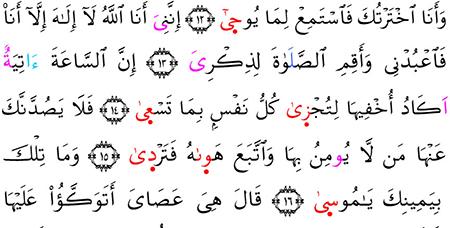 وَأَنَا اَخْتَرْتُكَ فَاسْتَمِعْ لِمَا يُوحىٰٓ ١٢ إِنَّنِىَ أَنَا اَللَّهُ لَآ إِلَٰهَ إِلَّآ أَنَا۠
فَاعْبُدْنِى وَأَقِمِ اِلصَّلَوٰةَ لِذِكْرِىَ ١٣ إِنَّ اَلسَّاعَةَ ءَاتِيَةٌ
اَكَادُ أُخْفِيهَا لِتُجْزىٰ كُلُّ نَفْسِۢ بِمَا تَسْعىٰ ١٤ فَلَا يَصُدَّنَّكَ
عَنْهَا مَن لَّا يُومِنُ بِهَا وَاتَّبَعَ هَوىٰهُ فَتَرْدىٰ ١٥ وَمَا تِلْكَ
بِيَمِينِكَ يَٰمُوسىٰ ١٦ قَالَ هِىَ عَصَاىَ أَتَوَكَّؤُاْ عَلَيْهَا